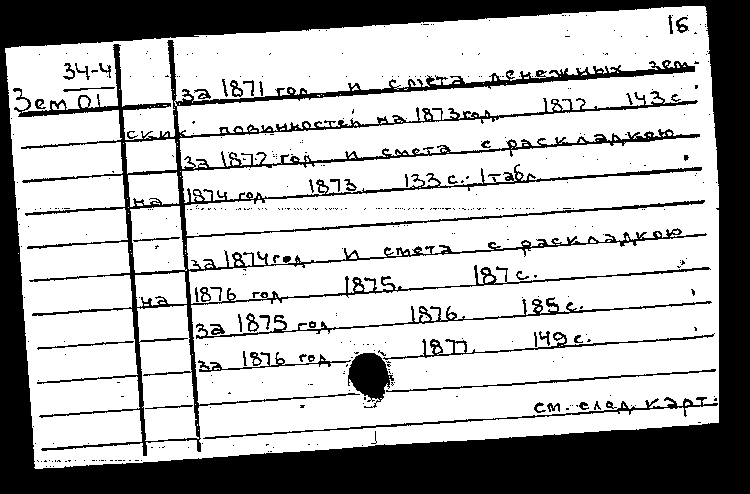 16
34-4
Зем 01
за 1871 год и смета денежных зем-
ских повинностей на 1873 год. 1872. 143 с.
за 1872 год и смета с раскладкою
на 1874 год 1873. 133 с.; 1 табл.
за 1874 год. и смета с раскладкою
на 1876 год 1875. 187 с.
за 1875 год 1876. 185 с.
за 1876 год 1877. 149 с.
см. след. карт.